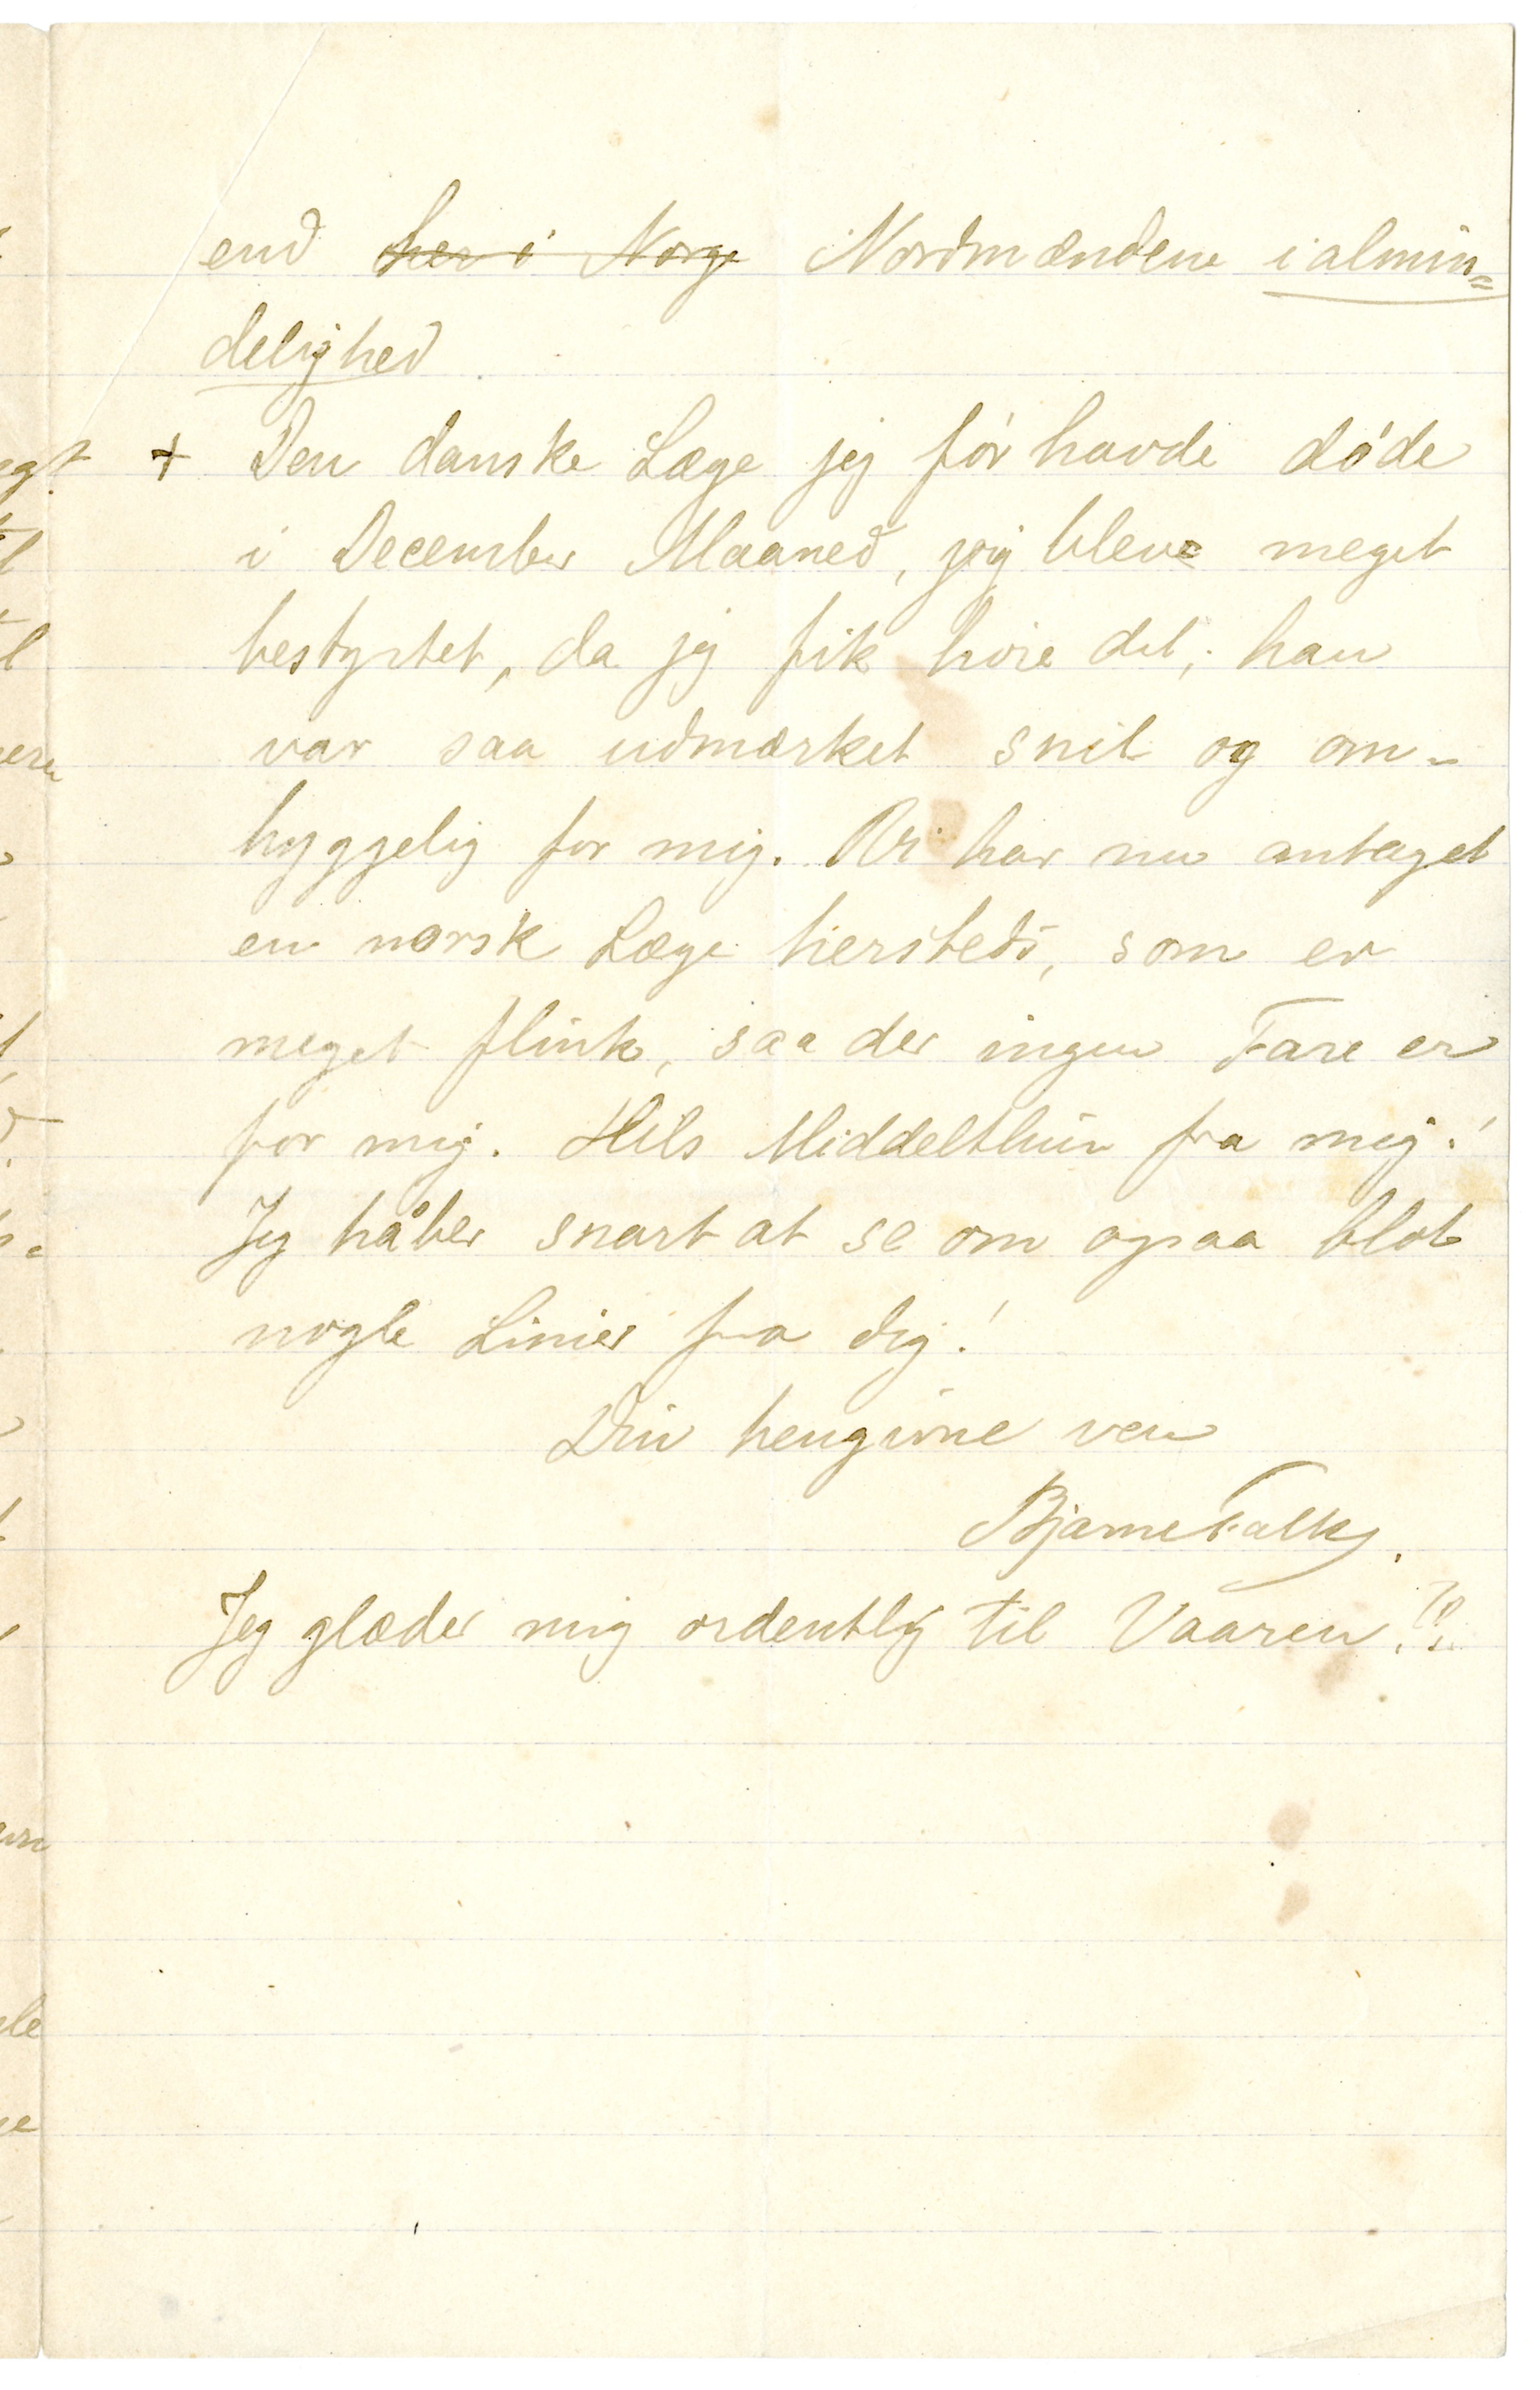 end her i Norge Nordmændene i almin=
delighed
+ Den danske Læge jeg før havde døde
i December Maaned, jeg bleve meget
bestyrtet, da jeg fik høre det; han
var saa udmærket snil og om-
hyggelig for mig. Vi har nu antaget
en norsk Læge hersteds, som er
meget flink, saa der ingen Fare er
for mig. Hils Middelthun fra mig!
Jeg håber snart at se om ogsaa blot
nogle Linier fra dig!
Din hengivne ven
Bjarne Falk.
Jeg glæder mig ordentlig til Vaaren!!